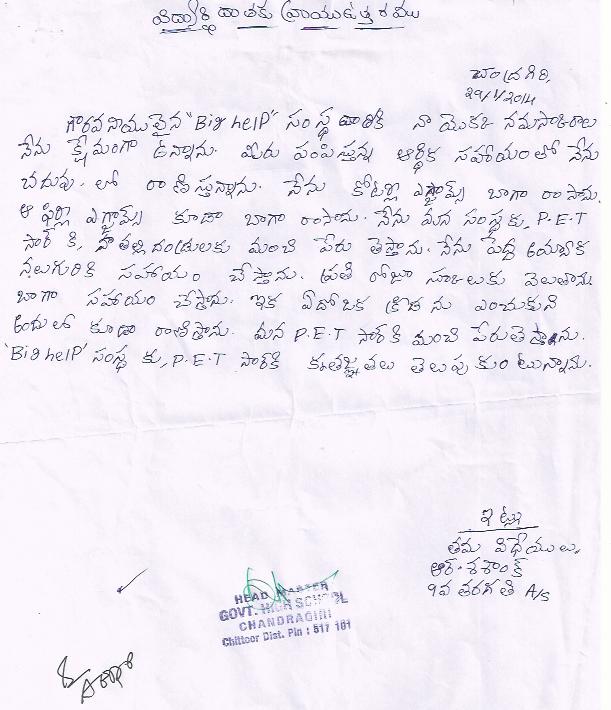 విద్యార్థి దాతకు వ్రాయు ఉత్తరము
చంద్రగిరి,
29/1/2014
గౌరవనీయులైన "Big help" సంస్థ వారికి నా యొక్క నమస్కారాలు
నేను క్షేమంగా ఉన్నాను. మీరు పంపిస్తున్న ఆర్థిక సహాయంతో నేను
చదువు.లో రాణిస్తున్నాను. నేను కోటర్లి ఎగ్జామ్స్ బాగా రాసాను.
ఆఫర్లి ఎగ్జామ్స్ కూడా బాగా రాసాను. నేను మన సంస్థకు, P.E.T
సార్ కి, నా తల్లిదండ్రులకు మంచి పేరు తెస్తాను. నేను పెద్ద అయ్యాక
నలుగురికి సహాయం చేస్తాను. ప్రతి రోజూ స్కూలుకు వెలతాను
బాగా సహాయం చేస్తాను. ఇక ఏదోఒక క్రీడను ఎంచుకుని
అందులో కూడా రాణిస్తాను. మన P.E.T సార్ కి మంచి పేరుతెస్తాను.
'Big help' సంస్థ కు, P.E.T సార్ కి కృతజ్ఞతలు తెలుపుకుంటున్నాను.
ఇట్లు
తమ విధేయులు,
ఆర్.శశాంక్
9వ తరగతి A/s
HEAD MASTER
GOVT. HIGH SCHOOL
CHANDRAGIRI
Chittoor Dist. Pin : 517 101